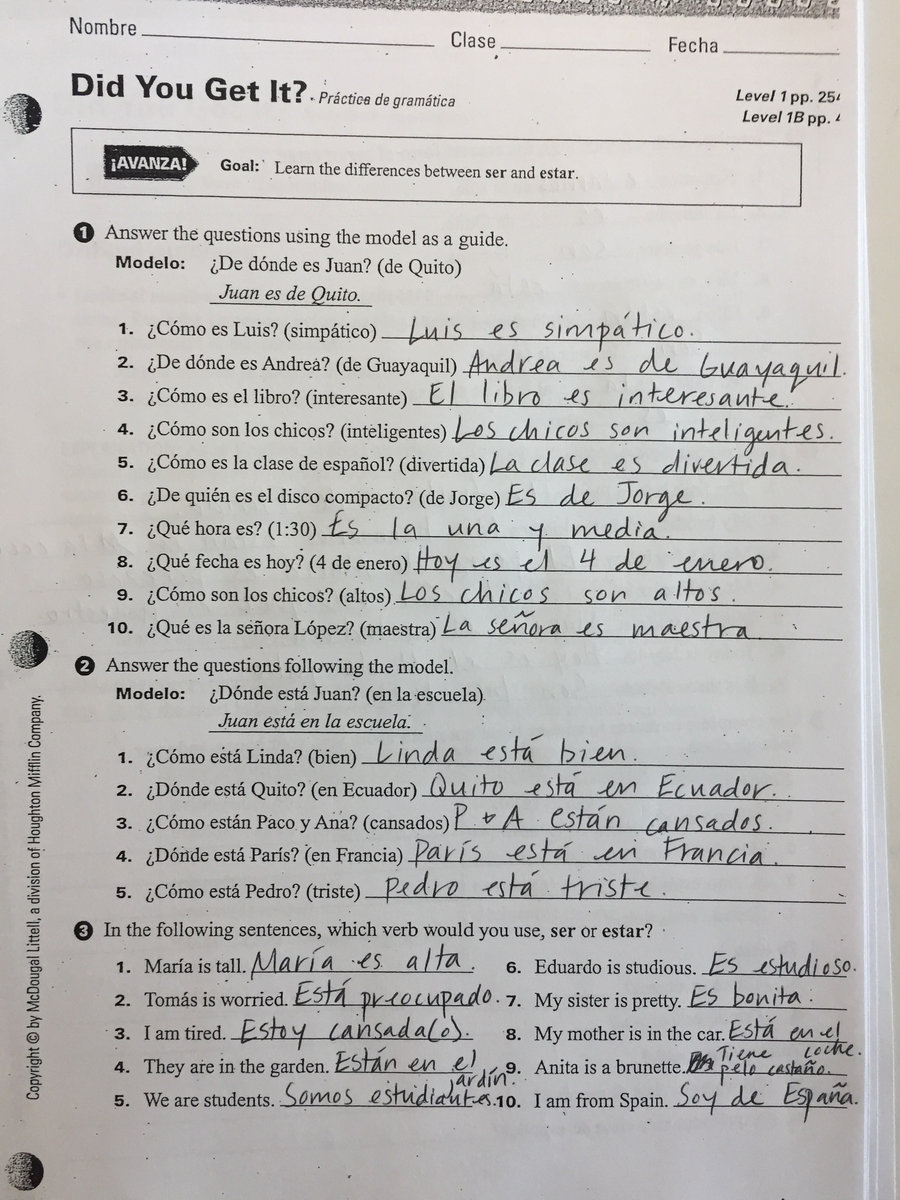 Nombre Clase Fecha
Did You Get It? Práctica de gramática
Level 1 pp. 254
Level 1B pp. 4
¡AVANZA! Goal: Learn the differences between ser and estar.
1 Answer the questions using the model as a guide.
Modelo: ¿De dónde es Juan? (de Quito)
Juan es de Quito.
1. ¿Cómo es Luis? (simpático) Luis es simpático.
2. ¿De dónde es Andrea? (de Guayaquil) Andrea es de Guayaquil.
3. ¿Cómo es el libro? (interesante) El libro es interesante.
4. ¿Cómo son los chicos? (inteligentes) Los chicos son inteligentes.
5. ¿Cómo es la clase de español? (divertida) La clase es divertida.
6. ¿De quién es el disco compacto? (de Jorge) Es de Jorge.
7. ¿Qué hora es? (1:30) Es la una y media.
8. ¿Qué fecha es hoy? (4 de enero) Hoy es el 4 de enero.
9. ¿Cómo son los chicos? (altos) Los chicos son altos.
10. ¿Qué es la señora López? (maestra) La señora es maestra
2 Answer the questions following the model.
Modelo: ¿Dónde está Juan? (en la escuela)
Juan está en la escuela.
1. ¿Cómo está Linda? (bien) Linda está bien.
2. ¿Dónde está Quito? (en Ecuador) Quito está en Ecuador.
3. ¿Cómo están Paco y Ana? (cansados) P + A están cansados.
4. ¿Dónde está París? (en Francia) París está en Francia.
5. ¿Cómo está Pedro? (triste) Pedro está triste.
3 In the following sentences, which verb would you use, ser or estar?
1. María is tall. María es alta.
2. Tomás is worried. Está preocupado.
3. I am tired. Estoy cansada(o).
4. They are in the garden. Están en el jardín.
5. We are students. Somos estudiantes.
6. Eduardo is studious. Es estudioso.
7. My sister is pretty. Es bonita.
8. My mother is in the car. Está en el coche.
9. Anita is a brunette. Tiene pelo castaño.
10. I am from Spain. Soy de España.
Copyright © by McDougal Littell, a division of Houghton Mifflin Company.